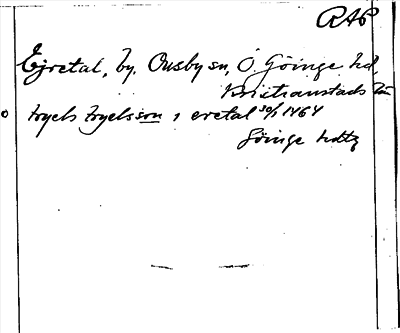 RAP
Ejretal, by, Ousby sn, Ö. Göinge hd,
Kristianstads län
tryels tryelsson i eretal 30/1 1464
Göinge hdtg